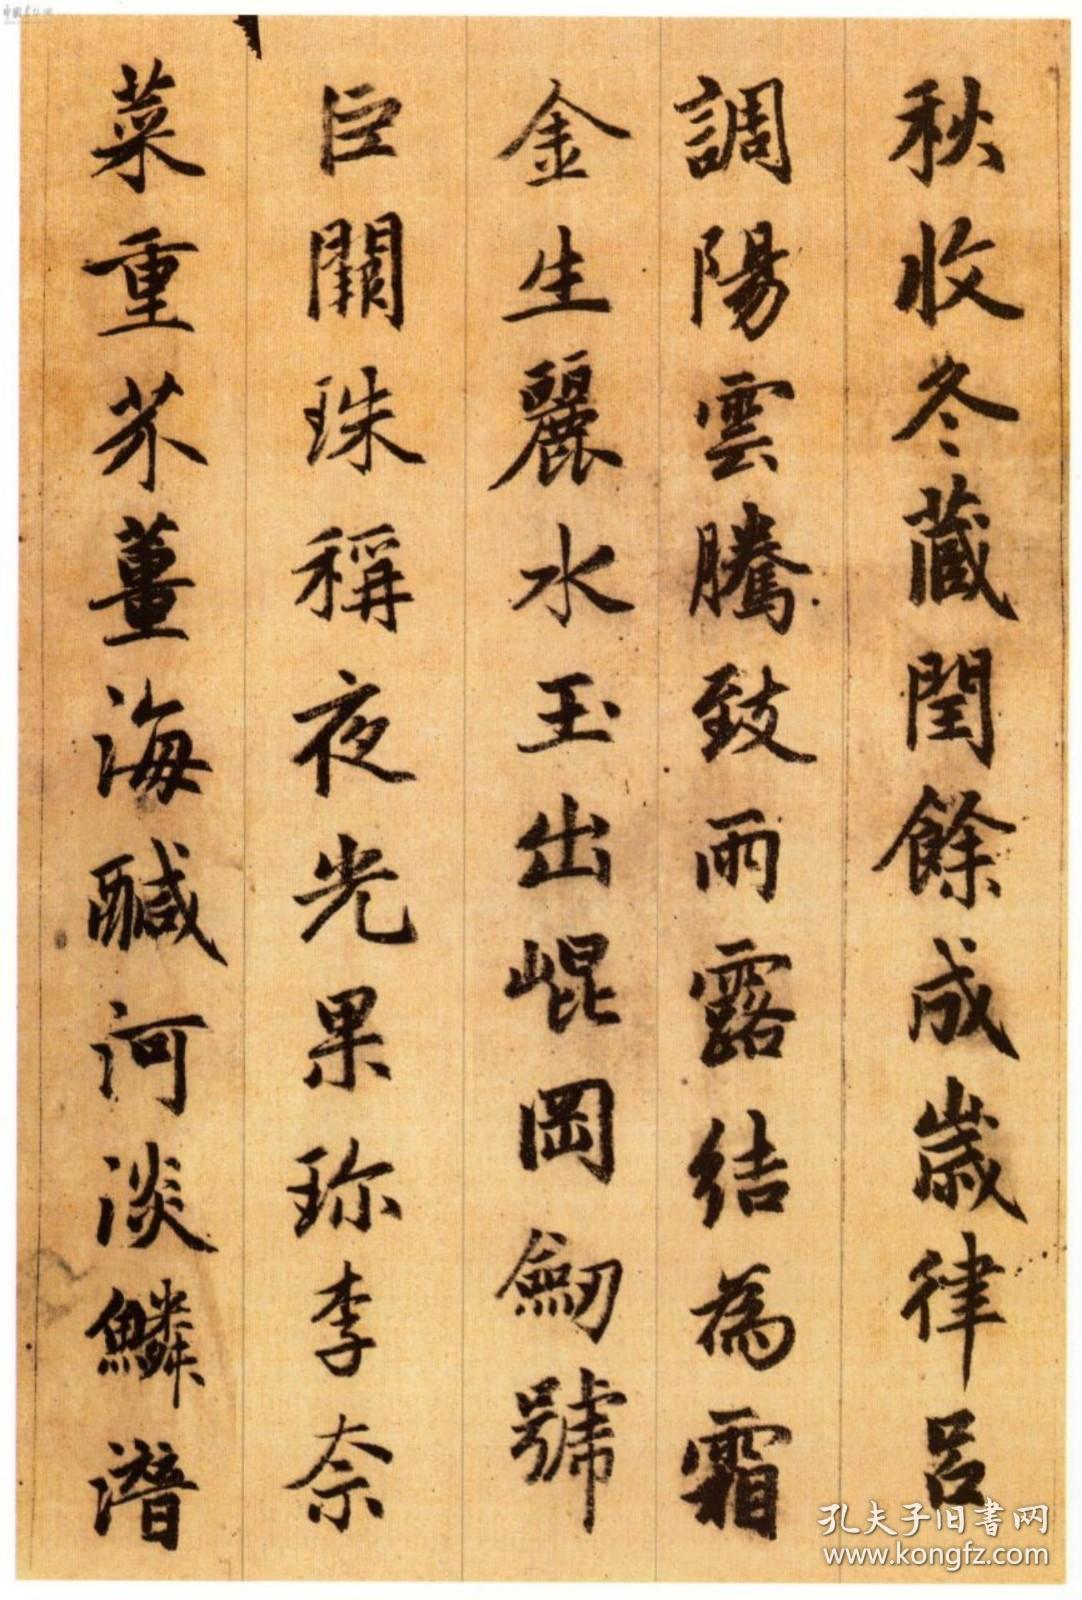 秋收冬藏閏餘成歲律呂
調陽雲騰致雨露結為霜
金生麗水玉出崐岡劒號
巨闕珠稱夜光果珎李奈
菜重芥薑海醎河淡鱗潛
孔夫子旧书网
www.kongfz.com